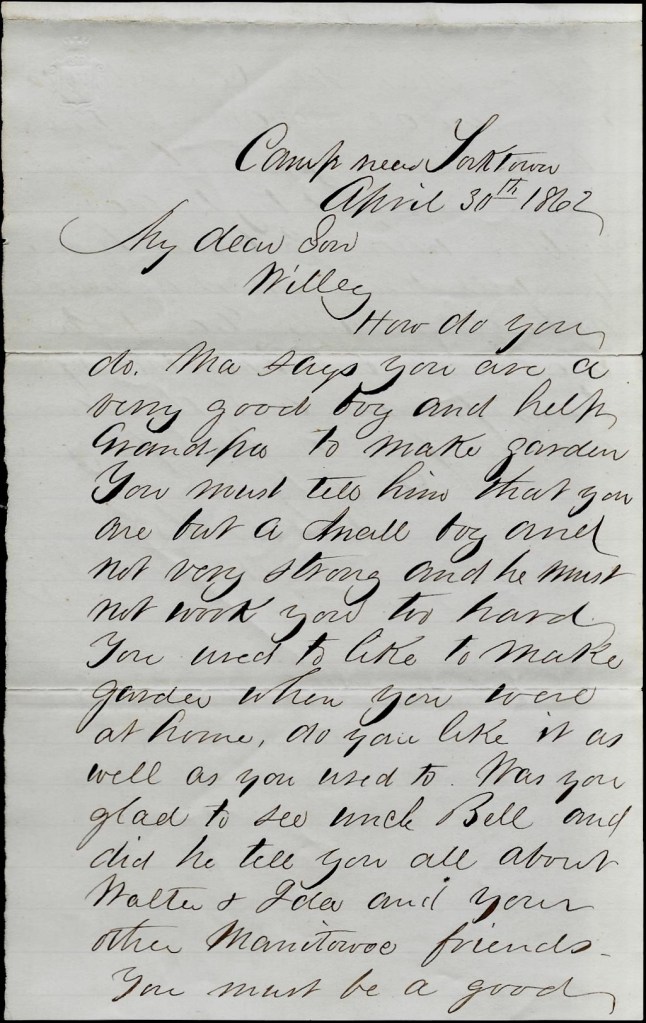 Camp near Yorktown
April 30th 1862
My dear Son
Willey
How do you
do. Ma says you are a
very good boy and help
Grandpa to make garden
You must tell him that you
are but a small boy and
not very strong and he must
not work you too hard
You used to like to make
garden when you were
at home, do you like it as
well as you used to. Was you
glad to see uncle Bell and
did he tell you all about
Walter & Ida and your
other Manitowoc friends-
You must be a good